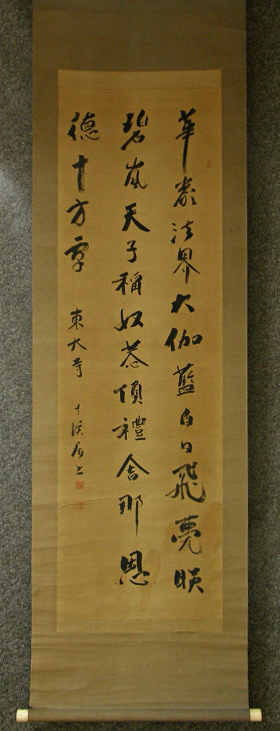 華嚴法界大伽藍白日飛甍映
碧嵐天子稱奴恭頂禮舍那恩
德十方覃 東大寺